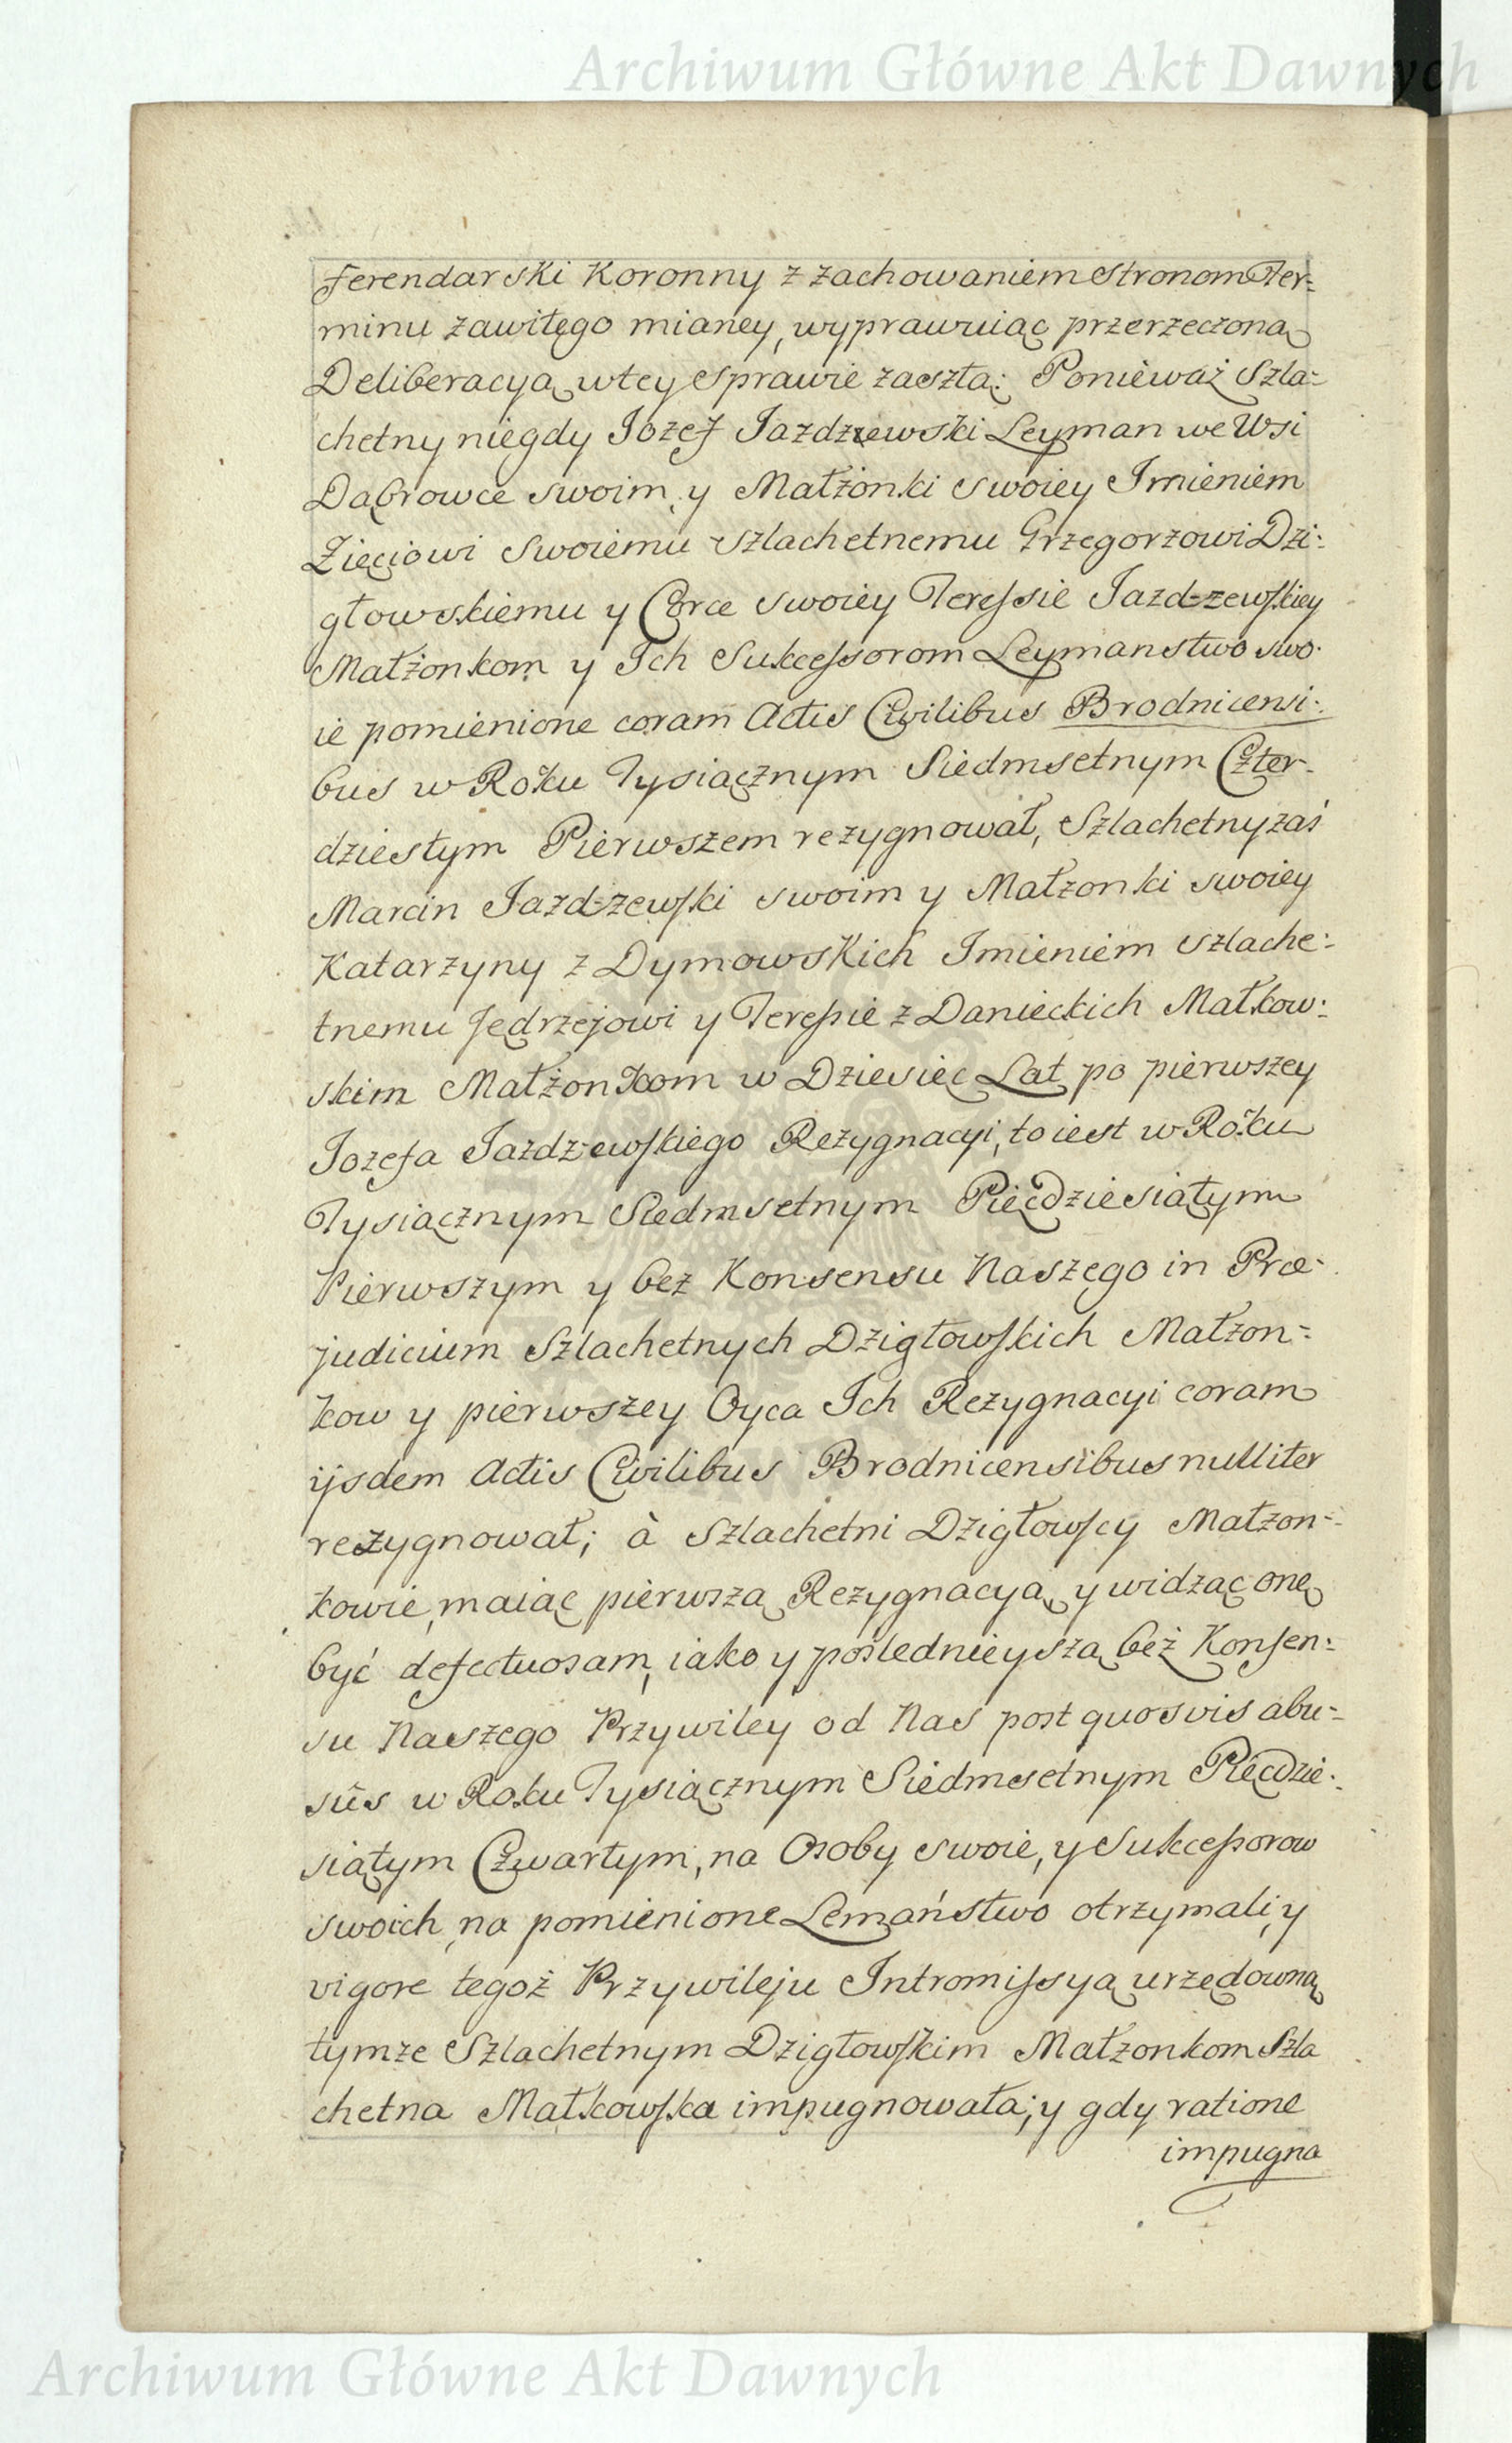 Archiwum Główne Akt Dawnych
ferendarski Koronny z zachowaniem Stronom Ter=
minu zawitego mianey, wyprawuiąc przerzeczoną
Deliberacyą w tey Sprawie zaszłą: Ponieważ Szla=
chetny niegdy Jozef Jazdzewski Leyman we Wsi
Dąbrowce swoim y Małżonki swoiey Imieniem
Zięciowi swoiemu Szlachetnemu Grzegorzowi Dzi:
głowskiemu y Corce swoiey Teressie Jazdzewskiey
Małżonkom y Ich Sukcessorom Leymanstwo swo:
ie pomienione coram Actis Civilibus Brodnicensi:
bus w Roku Tysiącznym Siedmsetnym Czter=
dziestym Pierwszem rezygnował, Szlachetny zaś
Marcin Jazdzewski swoim y Małzonki swoiey
Katarzyny z Dymowskich Imieniem Szlache:
tnemu Jędrzejowi y Teressie z Danieckich Małkow:
skim Małżonkom w Dziesięc Lat po pierwszey
Jozefa Jazdzewskiego Rezygnacyi, to iest w Roku
Tysiącznym Siedmsetnym Pięcdziesiątym
Pierwszym y bez Konsensu Naszego in Præ=
judicium Szlachetnych Dzigłowskich Małzon=
kow y pierwszey Oyca Ich Rezygnacyi coram
ijsdem Actis Civilibus Brodnicensibus nulliter
rezygnował; à Szlachetni Dzigłowscy Małzon=
kowie, maiąc pierwszą Rezygnacyą, y widząc onę
być defectuosam, iako y poslednieyszą bez Konsen:
su Naszego Przywiley od Nas post quosvis abu=
sûs w Roku Tysiącznym Siedmsetnym Pięcdzie:
siątym Czwartym, na Osoby swoie, y Sukcessorow
swoich, na pomienione Lemaństwo otrzymali, y
vigore tegoż Przywileju Intromissyą urzędowną
tymze Szlachetnym Dzigłowskim Małzonkom Szla
chetna Małkowska impugnowała; y gdy ratione
impugna
Archiwum Główne Akt Dawnych